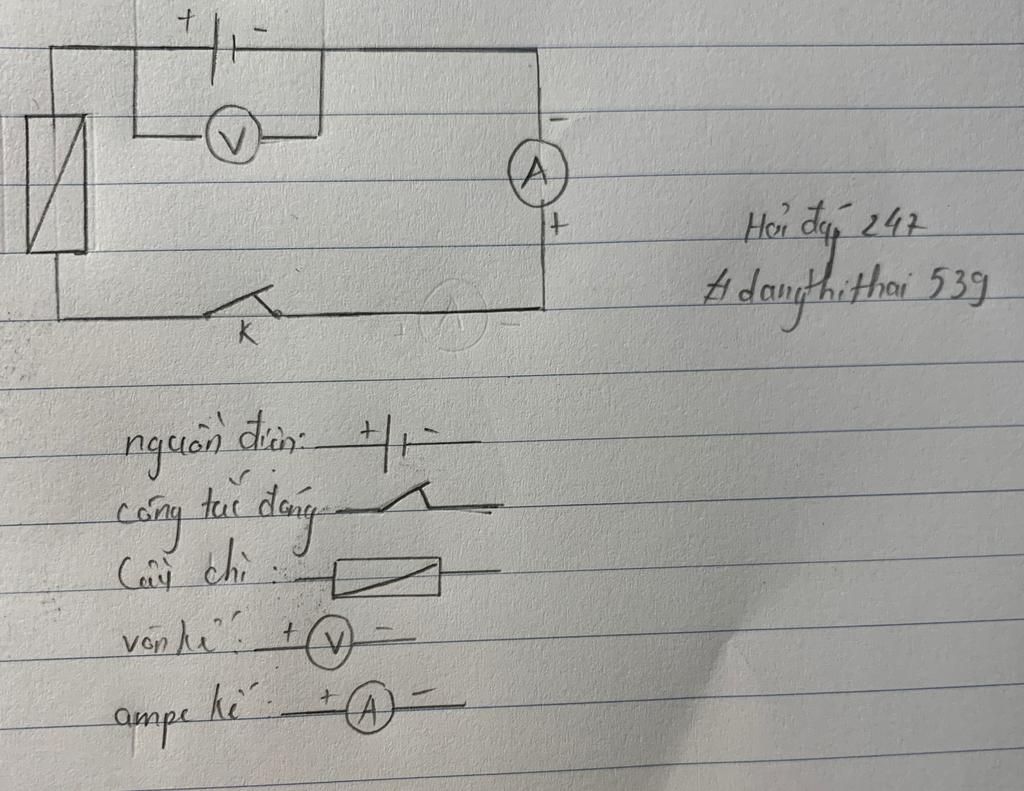 + -
V
-
A
+
K
Hỏi đáp 247
# dangthithai 539
nguồn điện: + -
công tắc đóng
Cầu chì :
vôn kế : + V -
ampe kế : + A -